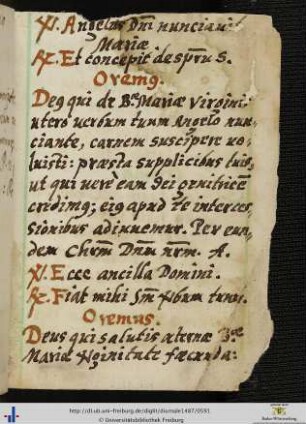 ℣. Angelus Dñi nunciavit
Mariæ
℟. Et concepit de spũ S.
Oremq.
Deq qui de Bᵉ Mariæ Virginis
utero verbum tuum Angelo nun,
ciante, carnem suscipere vo,
luisti: præsta supplicibus tuis,
ut qui verè eam Dei genitricẽ
credimq; eiq apud Te interces,
sionibus adiuvemur. Per eun,
dem Chrm Dnm nrm. A.
℣. Ecce ancilla Domini.
℟. Fiat mihi sm Verbum tuum.
Oremus.
Deus qui salutis æternæ Bᵉ
Mariæ Virginitate fæcunda:
http://dl.ub.uni-freiburg.de/diglit/diurnale1487/0591
© Universitätsbibliothek Freiburg
Baden-Württemberg